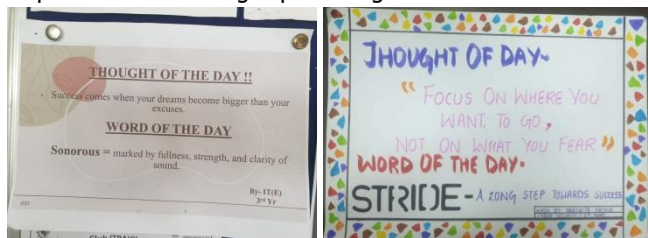 THOUGHT OF THE DAY !!
Success comes when your dreams become bigger than your
excuses.
WORD OF THE DAY
Sonorous = marked by fullness, strength, and clarity of
sound.
By- IT(E)
3rd Yr
THOUGHT OF DAY-
“FOCUS ON WHERE YOU
WANT TO GO,
NOT ON WHAT YOU FEAR”
WORD OF THE DAY-
STRIDE - A LONG STEP TOWARDS SUCCESS